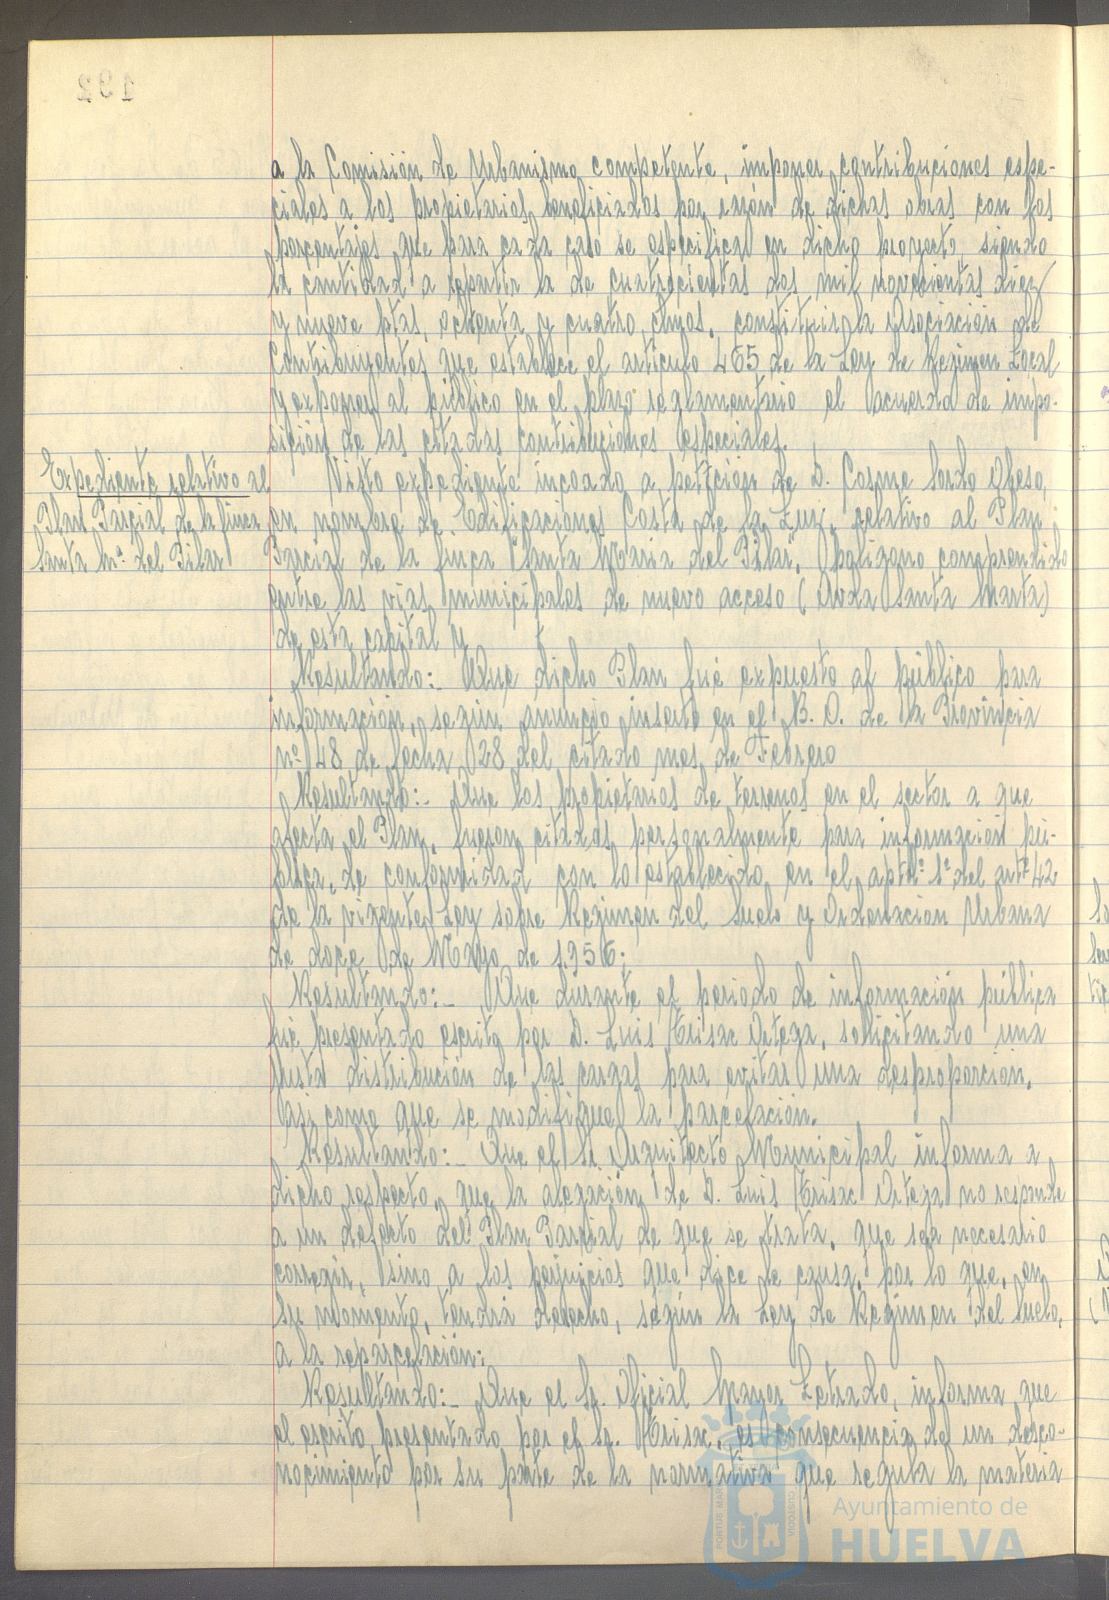 192
a la Comisión de Urbanismo competente, imponer contribuciones espe-
ciales a los propietarios beneficiados por razón de dichas obras con los
porcentajes que para cada caso se especifican en dicho proyecto, siendo
la cantidad a repartir la de cuatrocientas dos mil novecientas diez
y nueve ptas, ochenta y cuatro ctmos. constituir la Asociación de
Contribuyentes que establece el artículo 465 de la Ley de Regimen Local
y exponer al público en el plazo reglamentario el acuerdo de impo-
sición de las citadas contribuciones especiales.
Expediente relativo al
Plan Parcial de la finca
Santa Mª del Pilar
Visto expediente incoado a petición de D. Cosme Sordo Obeso,
en nombre de Edificaciones Costa de la Luz, relativo al Plan
Parcial de la finca "Santa Maria del Pilar", polígono comprendido
entre las vias municipales de nuevo acceso (Avda Santa Marta)
de esta capital y
Resultando:- Que dicho Plan fué expuesto al público para
información, según anuncio inserto en el B. O. de la Provincia
nº 48 de fecha 28 del citado mes de Febrero
Resultando:- Que los propietarios de terrenos en el sector a que
afecta el Plan, fueron citados personalmente para información pú-
blica, de conformidad con lo establecido en el aptdº 1º del artº 42
de la vigente Ley sobre Regimen del Suelo y Ordenación Urbana
de doce de Mayo de 1.956;
Resultando:- Que durante el periodo de información pública
fué presentado escrito por D. Luis Ortega, solicitando una
justa distribución de las cargas para evitar una desproporción,
asi como que se modifique la parcelación.
Resultando:- Que el Sr. Arquitecto Municipal informa a
dicho respecto, que la alegación de D. Luis Ortega no responde
a un defecto del Plan Parcial de que se trata, que sea necesario
corregir, sino a los perjuicios que dice le causa, por lo que, en
su momento, tendrá derecho, según la Ley de Regimen del Suelo,
a la reparcelación;
Resultando:- Que el Sr. Oficial Mayor Letrado, informa que
el escrito presentado por el Sr. es consecuencia de un desco-
nocimiento por su parte de la normativa que regula la materia
Ayuntamiento de
HUELVA